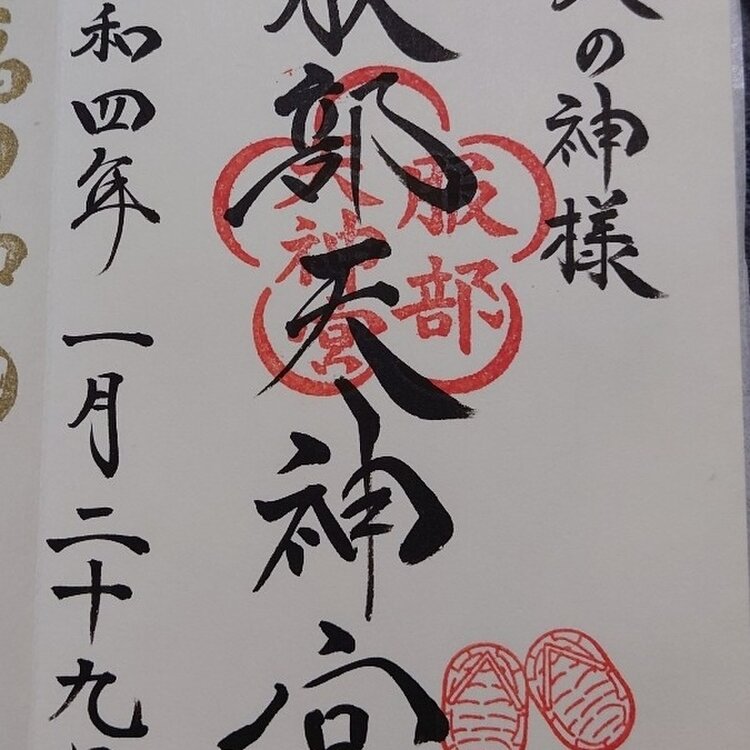 の神様
服部天神宮
服部
天神宮
和四年 一月二十九日